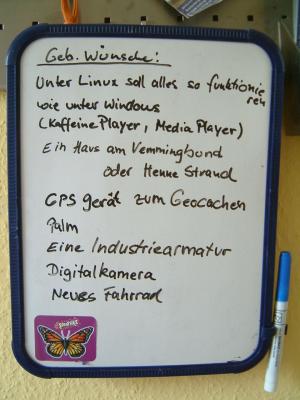 Geb. Wünsche:
Unter Linux soll alles so funktionie
ren
wie unter Windows
(Kaffeine Player, Media Player)
Ein Haus am Vemmingbund
oder Henne Strand
GPS gerät zum Geocachen
Palm
Eine Industriearmatur
Digitalkamera
Neues Fahrrad